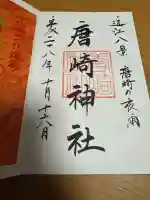 近江八景 唐崎の夜雨
唐崎神社
平成二十八年十月十六日